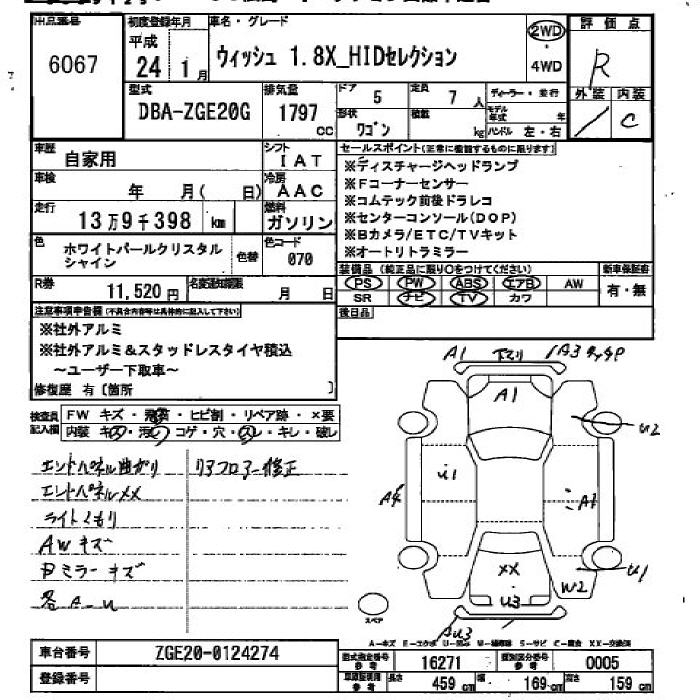 出品番号 初度登録年月 車名・グレード 評価点
6067 平成 24 1月 ウィッシュ 1.8X_HIDセレクション 2WD・4WD R
型式 排気量 ドア 定員 ディーラー・並行 外装 内装
DBA-ZGE20G 1797 CC 5 7人 モデル年式 年 / C
形状 ワゴン 積載 kg ハンドル 左・右
車歴 自家用 シフト IAT セールスポイント(正常に機能するものに限ります)
車検 年 月( 日) 冷房 AAC
※ディスチャージヘッドランプ
※Fコーナーセンサー
※コムテック前後ドラレコ
※センターコンソール(DOP)
※Bカメラ/ETC/TVキット
※オートリトラミラー
走行 13万9千398 km 燃料 ガソリン
色 ホワイトパールクリスタルシャイン 色替 色コード 070
装備品(純正品に限り○をつけてください) 新車保証書
PS PW ABS エアB AW 有・無
SR ナビ TV カワ
R券 11,520円 名変通知期限 月 日
後日品
注意事項申告欄(不具合内容等は具体的に記入して下さい)
※社外アルミ
※社外アルミ&スタッドレスタイヤ積込
～ユーザー下取車～
修復歴 有〔箇所 〕
検査員記入欄 FW キズ・飛石・ヒビ割・リペア跡・×要
内装 キズ・汚れ・コゲ・穴・スレ・キレ・破レ
エンドパネル曲ガリ リアフロアー修正
エンドパネルXX
ライトくもり
AWキズ
Bミラーキズ
各A-U
A1 下マワリ A3 タッチP
A1
U2
i1
A4
A1
XX
U3
W2
U1
AU3
スペア
A-キズ E-エクボ U-凹み W-補修跡 S-サビ C-腐食 XX-交換済
車台番号 ZGE20-0124274 型式指定番号 参考 16271 類別区分番号 参考 0005
登録番号 車庫証明用 参考 長さ 459 cm 幅 169 cm 高さ 159 cm